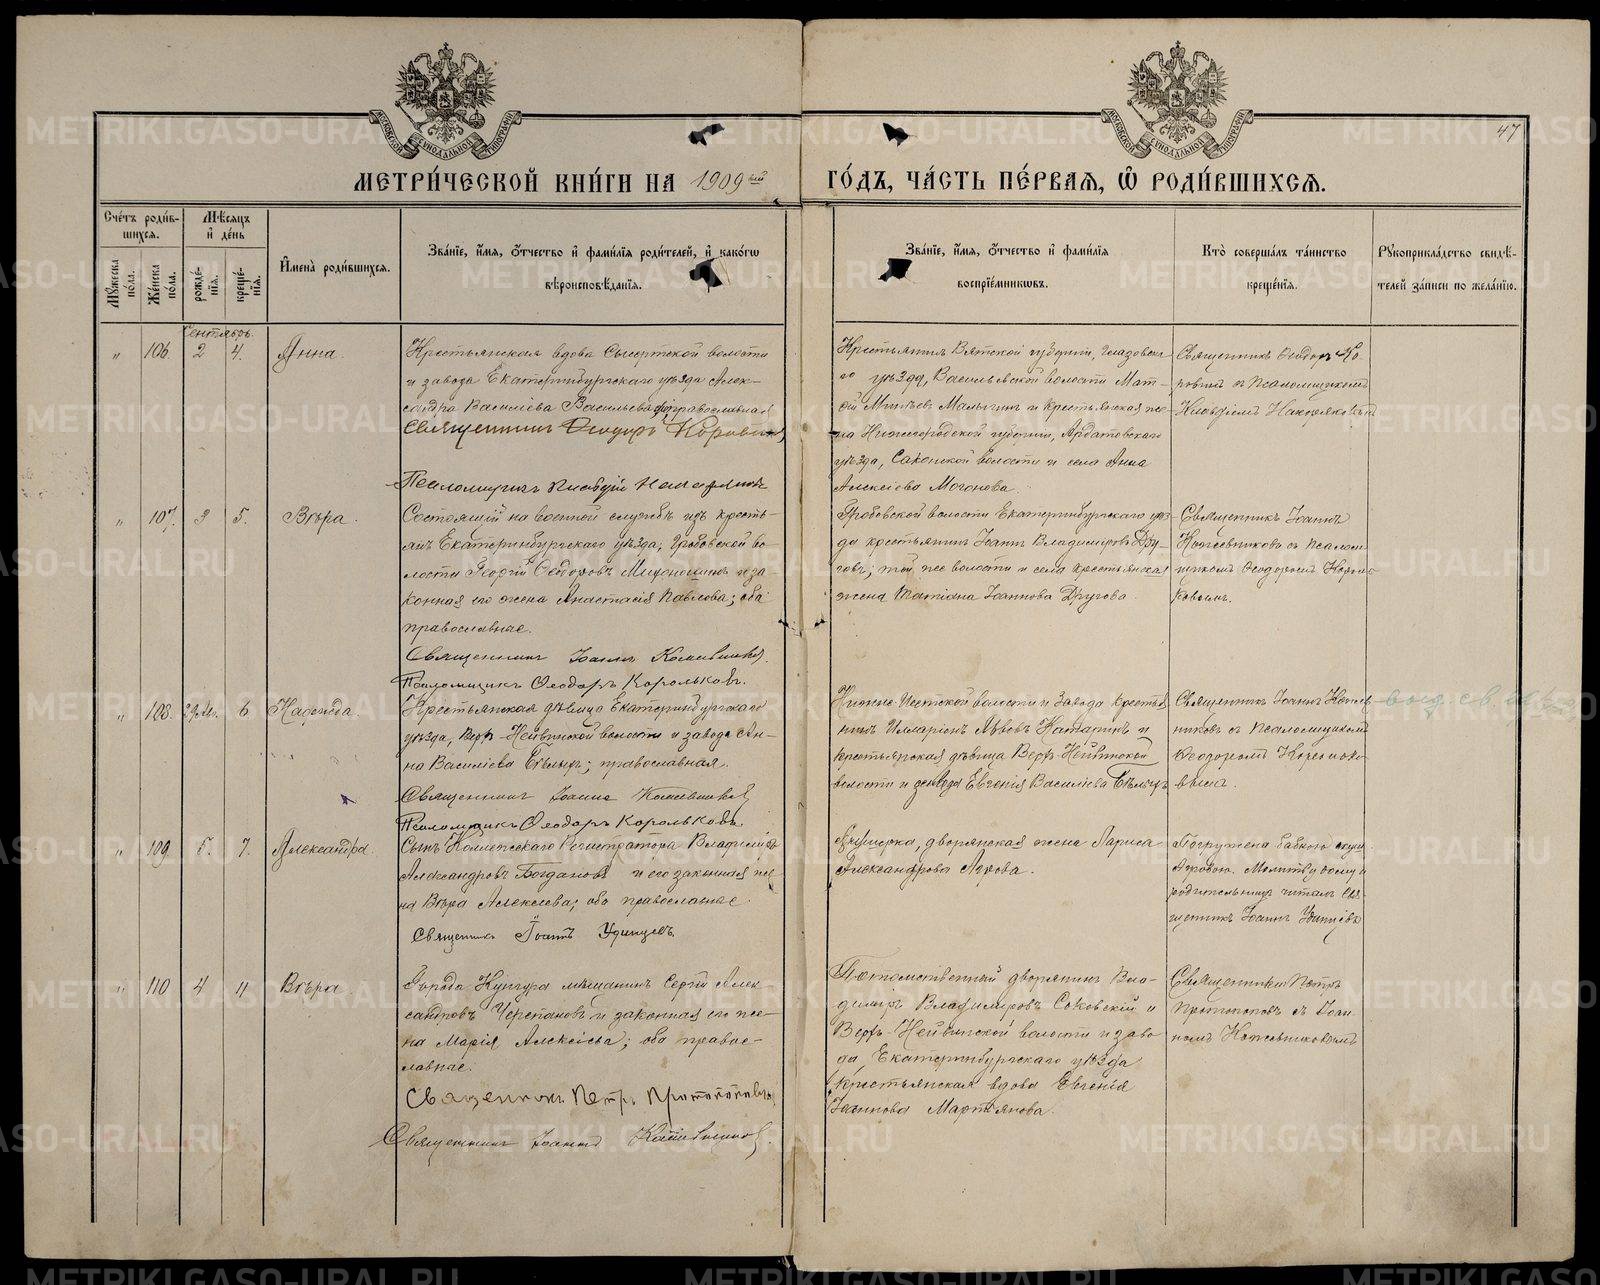 МОСКОВСКОЙ СѴНОДАЛЬНОЙ ТИПОГРАФІИ
МОСКОВСКОЙ СѴНОДАЛЬНОЙ ТИПОГРАФІИ
47
МЕТРИ́ЧЕСКОЙ КНИ́ГИ НА 1909 ый ГО́ДЪ, ЧА́СТЬ ПЕ́РВАЯ, Ѡ РОДИ́ВШИХСЯ.
Сче́тъ роди́в-
шихся.
Мужеска по́ла.
Же́нска по́ла.
Мѣ́сяцъ
и де́нь
рожде́-
нія.
креще́-
нія.
Имена̀ роди́вшихся.
Зва́ніе, и́мя, о́тчество и фами́лія роди́телей, и како́гѡ
вѣроисповѣ́данія.
Зва́ніе, и́мя, о́тчество и фами́лія
воспріе́мникѡвъ.
Кто̀ соверша́лъ та́инство
креще́нія.
Рукоприкла́дство свидѣ́-
телей за́писи по жела́нію.
Сентябрь.
" 106 2 4. Анна.
Крестьянская вдова Сысертской волости
и завода Екатеринбургскаго уѣзда Алек-
сандра Василіева Васильева православная
Священникъ Ѳеодоръ Коровинъ
Псаломщикъ
Крестьянинъ Вятской губерніи, Глазовска-
го уѣзда, Васильевской волости Мат-
ѳій Малыгинъ и крестьянская же-
на Нижегородской губерніи, Ардатовскаго
уѣзда, Саконской волости и села Анна
Алексіева
Священникъ Ѳеодоръ Ко-
ровинъ съ Псаломщикомъ
" 107. 3 5. Вѣра.
Состоящій на военной службѣ изъ кресть-
янъ Екатеринбургскаго уѣзда, Гробовской во-
лости Георгій Ѳеодоровъ и за-
конная его жена Анастасія Павлова; оба
православные.
Священникъ Іоаннъ Кожевниковъ.
Псаломщикъ Ѳеодоръ Корольковъ.
Гробовской волости Екатеринбургскаго уѣз-
да крестьянинъ Іоаннъ Владиміровъ Дру-
говъ; той же волости и села крестьянская
жена Татіана Іоаннова Другова.
Священникъ Іоаннъ
Кожевниковъ съ Псалом-
щикомъ Ѳеодоромъ Король-
ковымъ.
" 108. 29 Авг. 6 Надежда.
Крестьянская дѣвица Екатеринбургскаго
уѣзда, Верх-Нейвинской волости и завода Ан-
на Василіева Бѣлыхъ; православная.
Священникъ Іоаннъ Кожевниковъ
Псаломщикъ Ѳеодоръ Корольковъ.
Нижне-Исетской волости и Завода крестья-
нинъ Илларіонъ Львовъ и
крестьянская дѣвица Верх-Нейвинской
волости и завода Евгенія Василіева Бѣлыхъ
Священникъ Іоаннъ Кожев-
никовъ съ Псаломщикомъ
Ѳеодоромъ Королько-
вымъ.
" 109 5. 7. Александра.
Сынъ Коллежскаго Регистратора Владиміръ
Александровъ Богдановъ и его законная же-
на Вѣра Алексіева; оба православные.
Священникъ Іоаннъ Удинцевъ.
дворянская жена Лариса
Александрова
Погружена бабкою
Молитву дому и
родительницѣ читалъ Свя-
щенникъ Іоаннъ Удинцевъ
" 110 4 11 Вѣра.
Города Кунгура мѣщанинъ Сергій Алек-
сандровъ Черепановъ и законная его же-
на Марія Алексіева; оба право-
славные.
Священникъ Петръ Протопоповъ
Священникъ Іоаннъ Кожевниковъ.
Потомственный дворянинъ Вла-
димиръ Владиміровъ Соковскій и
Верхъ-Нейвинской волости и заво-
да, Екатеринбургскаго уѣзда
крестьянская вдова Евгенія
Іоаннова Мартьянова.
Священники Петръ
Протопоповъ и Іоан-
номъ Кожевниковымъ